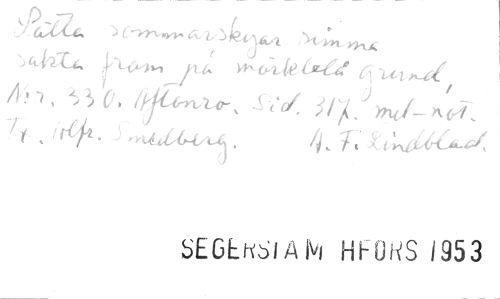 Lätta sommarskyar simma
sakta fram på mörkblå grund,
N:r. 330. Aftonro. Sid. 317. mel-not.
Tx. Alfr. Smedberg. A. F. Lindblad.
SEGERSTAM HFORS 1953